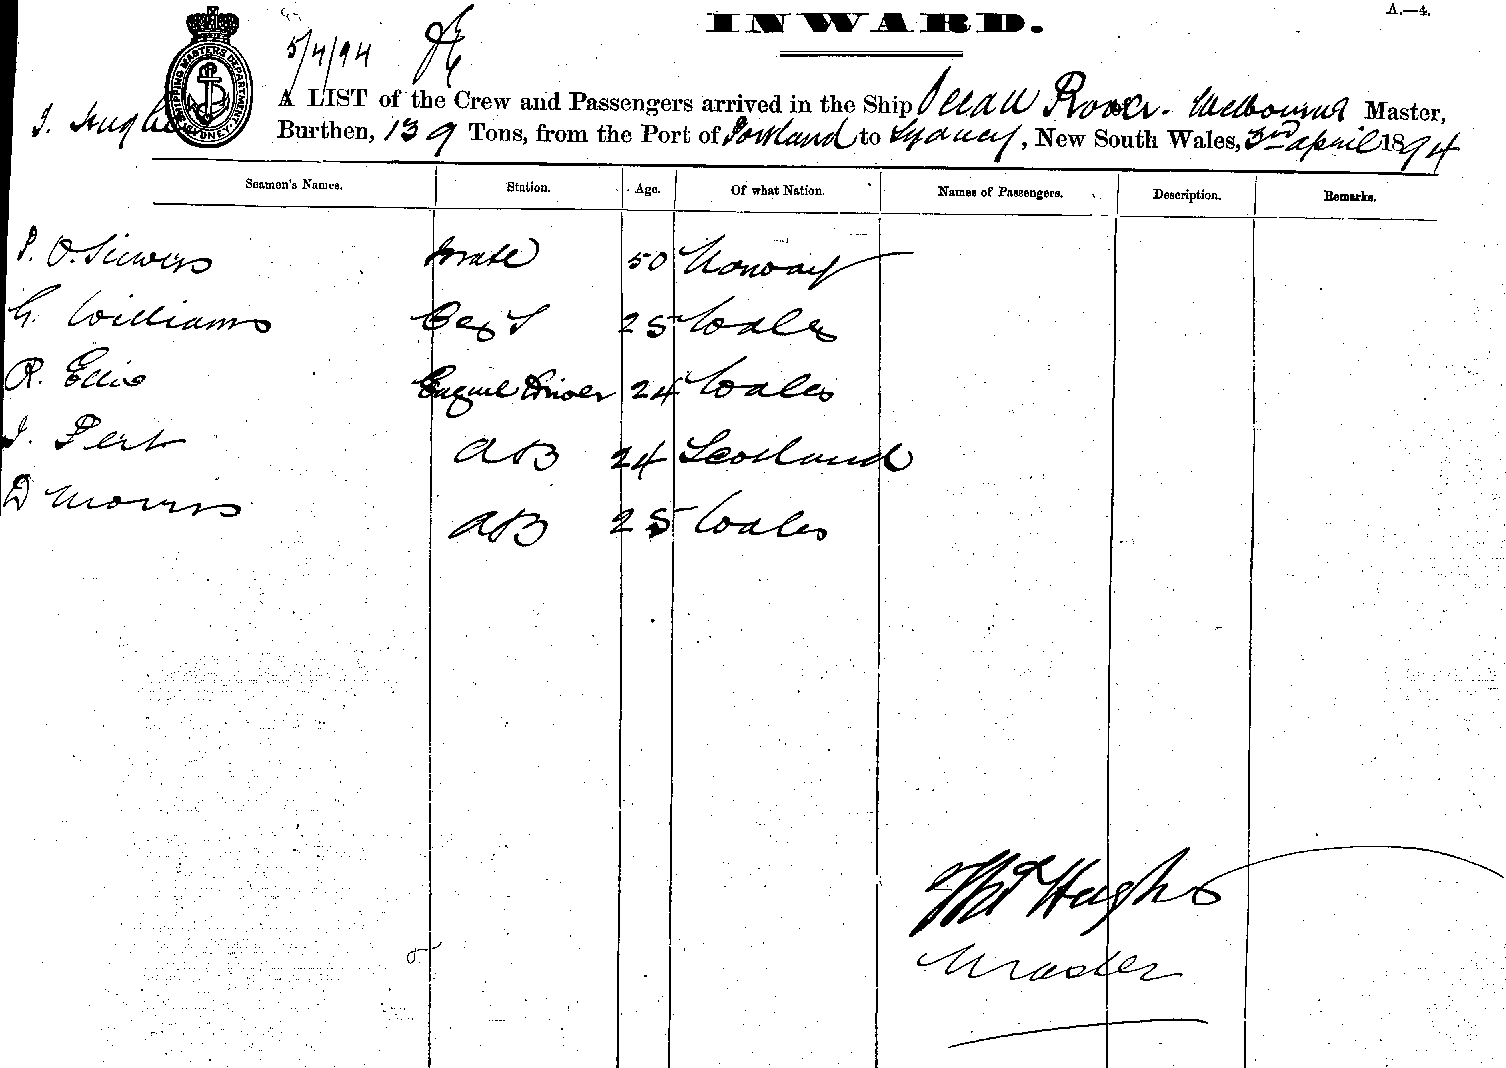 A.—4.
INWARD.
5/4/94
SHIPPING MASTERS DEPARTMENT SYDNEY
A LIST of the Crew and Passengers arrived in the Ship Ocean Rover. Melbourne Master,
Burthen, 139 Tons, from the Port of Portland to Sydney, New South Wales, 3rd April 1894
Seamen's Names. Station. Age. Of what Nation. Names of Passengers. Description. Remarks.
P. O. Siewers Mate 50 Norway
G. Williams 25 Wales
R. Ellis Engine Driver 24 Wales
J. Pert AB 24 Scotland
D Morris AB 25 Wales
Thos Hughes
Master